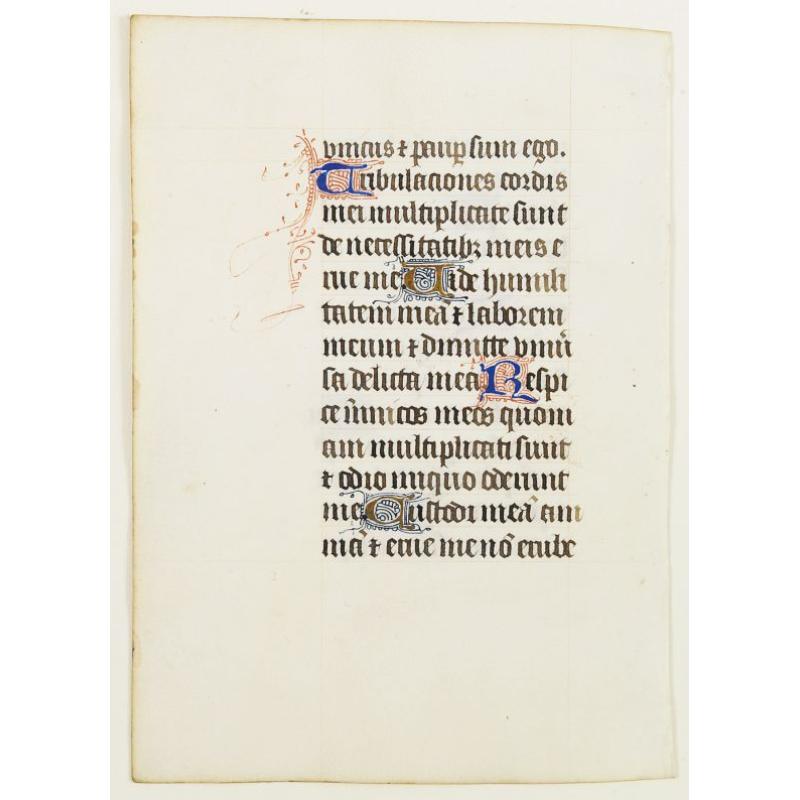 vnicus ⁊ paup̱ sum ego.
Tribulaciones cordis
mei multiplicate sunt
de necessitatibꝫ meis e
rue me Uide humili
tatem meā ⁊ laborem
meum ⁊ dimitte vniu͛
sa delicta mea Respi
ce īimicos meos quoni
am multiplicati sunt
⁊ odio iniquo oderunt
me Custodi meā ani
mā ⁊ erue me nō erube